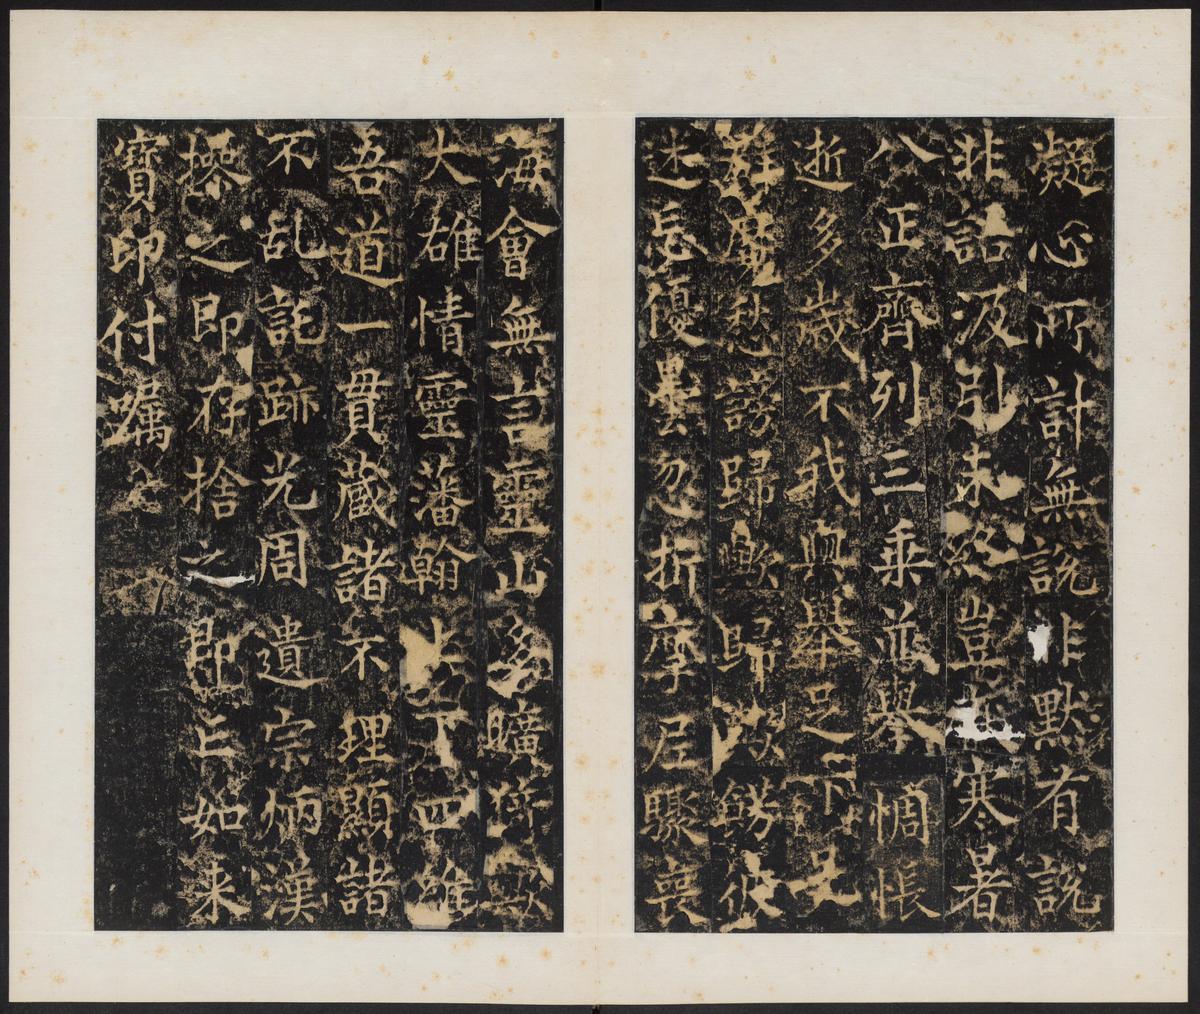 凝心所計無說非默有說
非詰汲引未終豈㧞寒暑
八正齊列三乘並舉惆悵
逝多歲不我與舉足下足
離魔愁謗歸歟歸歟餝彼
迷忘優曇忽折摩尼驟喪
海會無言靈山多曠猗歟
大雄情靈藩翰上下四維
吾道一貫蔵諸不理顯諸
不乱託跡光周遺宗炳漢
操之即存捨之即亡如来
寶印付嘱